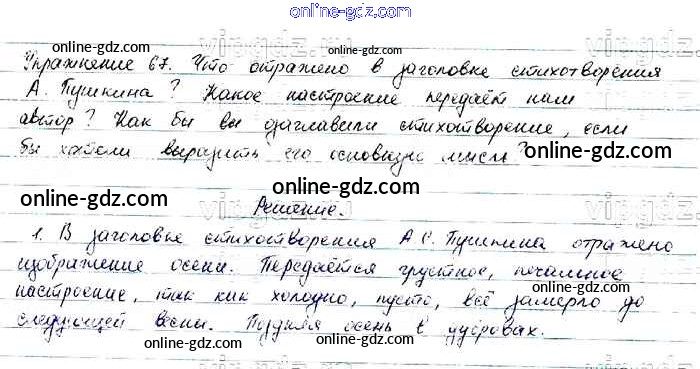 online-gdz.com
Упражнение 67. Что отражено в заголовке стихотворения
А. Пушкина? Какое настроение передаёт нам
автор? Как бы вы озаглавили стихотворение, если
бы хотели выразить его основную мысль?
Решение.
1. В заголовке стихотворения А.С. Пушкина отражено
изображение осени. Передаётся грустное, печальное
настроение, так как холодно, пусто, всё замерло до
следующей весны. Поздняя осень в
online-gdz.com
online-gdz.com
online-gdz.com
online-gdz.com
online-gdz.com
online-gdz.com
online-gdz.com
online-gdz.com
online-gdz.com
online-gdz.com
online-gdz.com
online-gdz.com